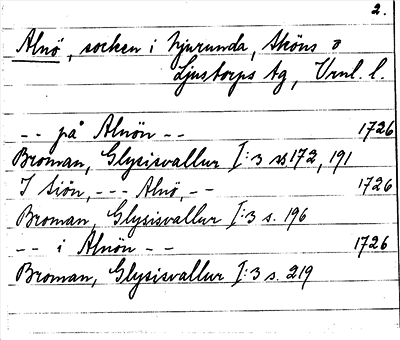 2.
Alnö, socken i Njurunda, Sköns o
Ljustorps tg, Vrnl. l.
-- på Alnön -- 1726
Broman, Glysisvallur I:3 ss 172, 191
I Siön, --- Alnö, -- 1726
Broman, Glysisvallur I:3 s. 196
-- i Alnön -- 1726
Broman, Glysisvallur I:3 s. 219